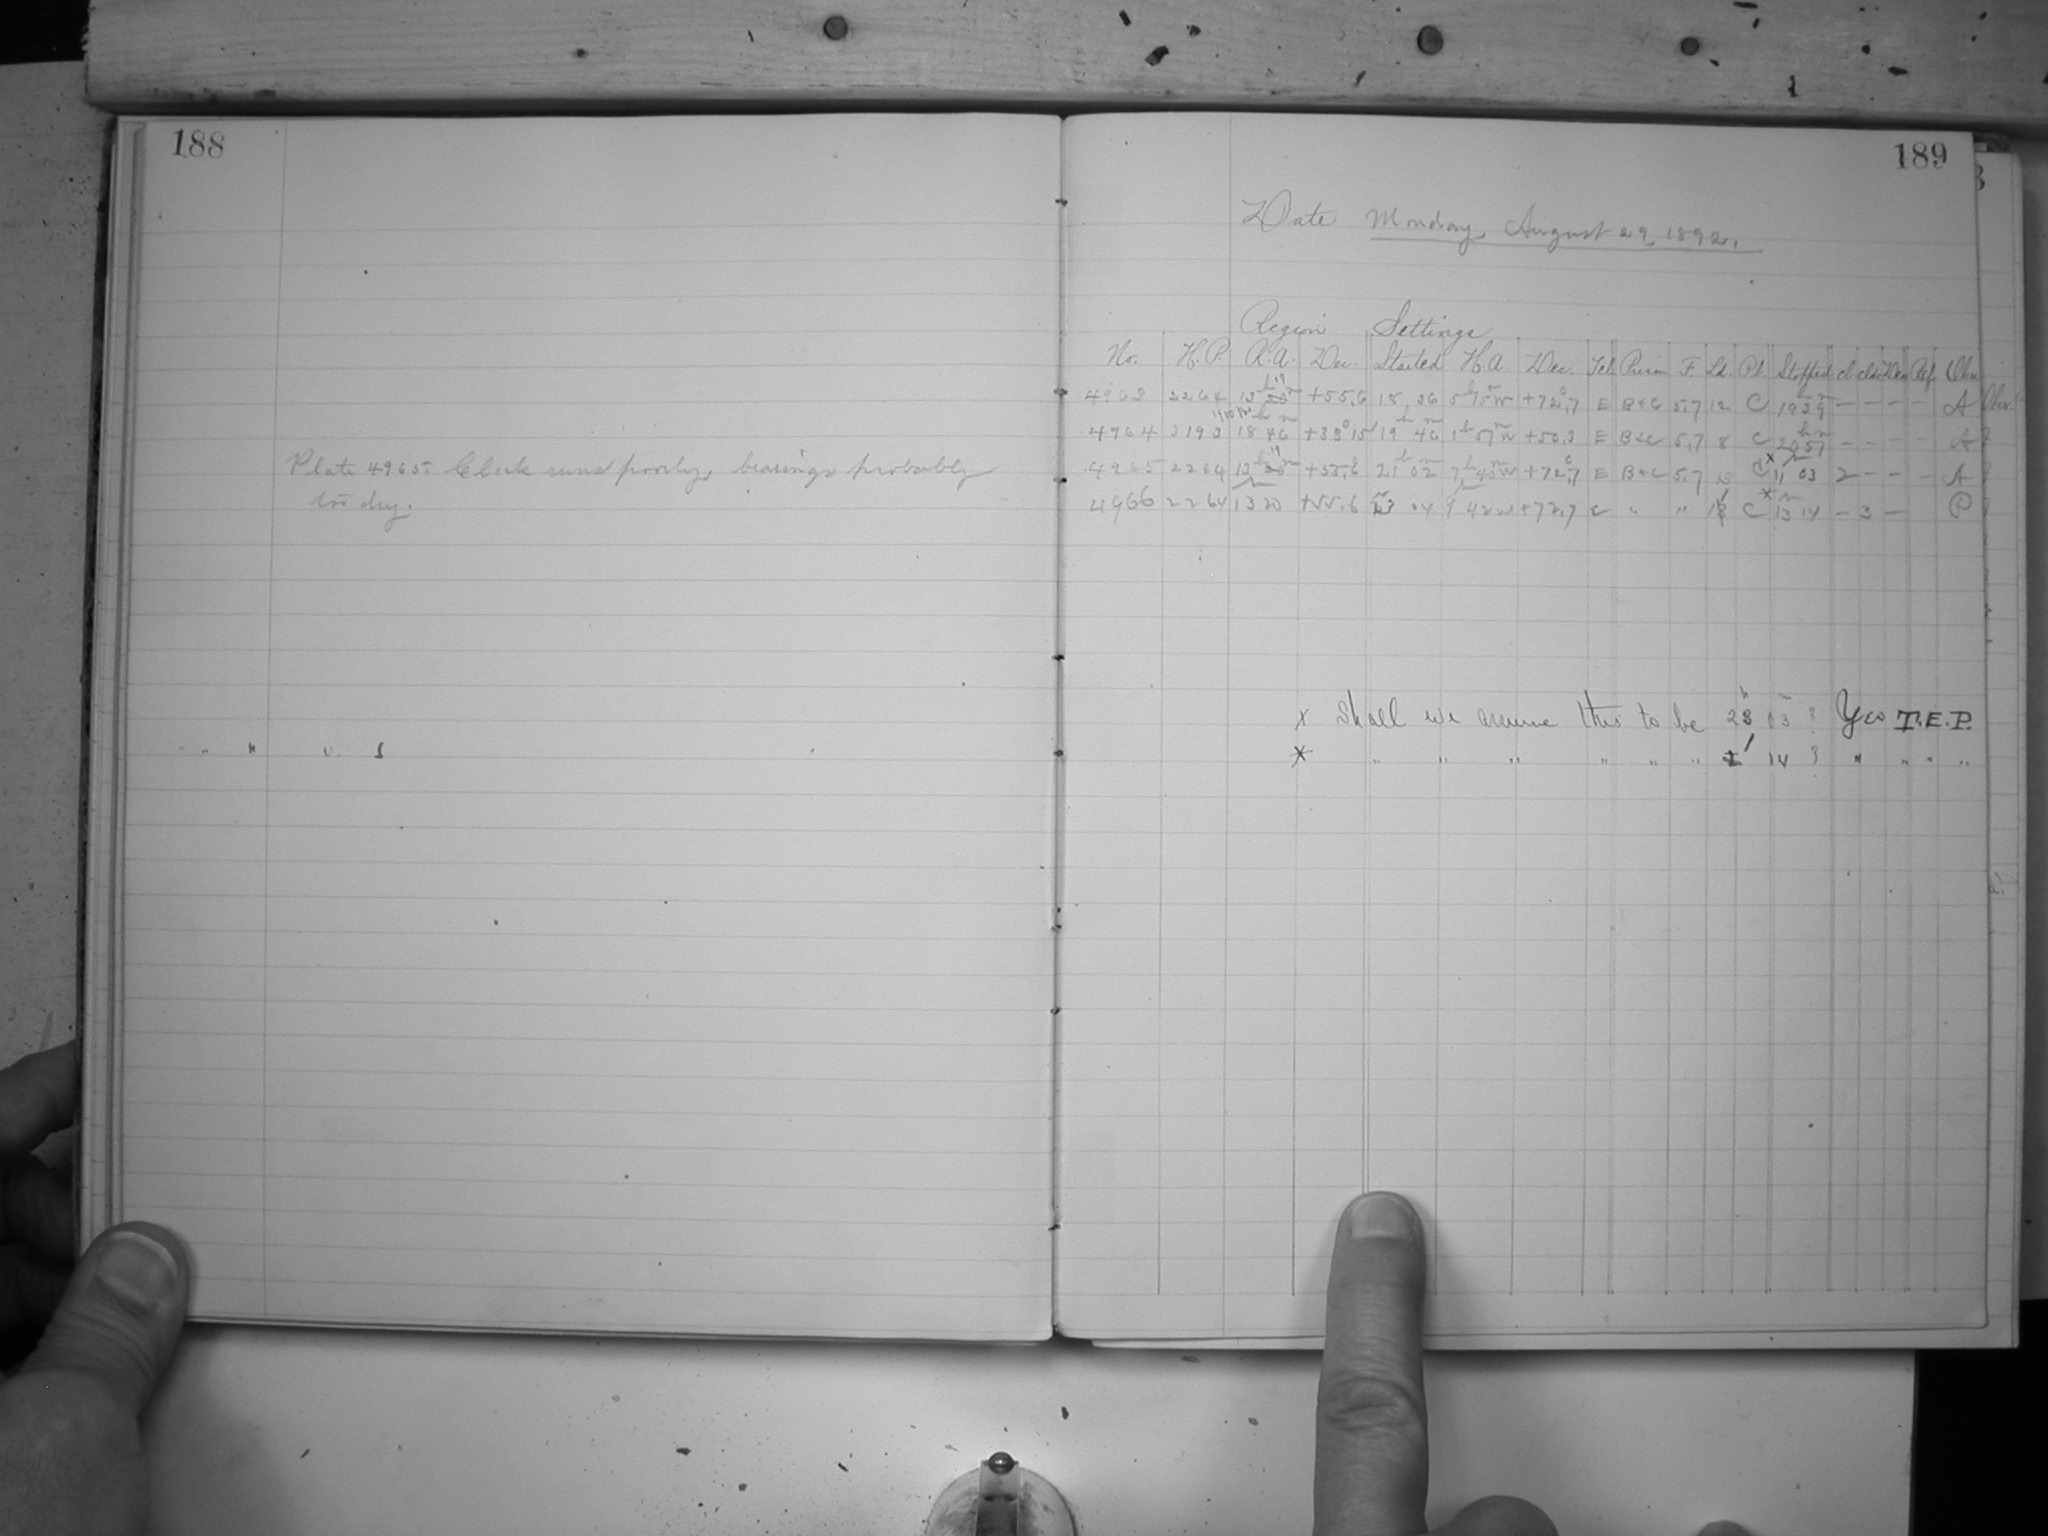 188
Plate 4965. Clock runs poorly, bearings probably
too dry.
189
Date Monday, August 29, 1892.
Region Settings
No. H.P. R.A. Dec. Started H.A. Dec. Tel. Prism F. Ld. Pl. Stopped cl. Ref. Obs.
4963 2264 13h +55.6 18 36 5h 15m W +72.7 E B&C 5.7 12 C 19 39 – – – – A
4964 3193 18h 46m +38° 15' 19h 46m 1h 57m W +50.3 E B&C 5.7 8 C 20h 57m – – – – A
4965 2264 13h +55.6 21h 02m 7h 43m W +72.7 E B&C 5.7 C x 11 03 2 – – – A
4966 2264 13 20 +55.6 23 04 9 42 W +72.7 C " " C * 13 14 – 3 – P
x Shall we assume this to be 23h 03m ? Yes T.E.P.
* " " " " " " 1 14 ? " " " "